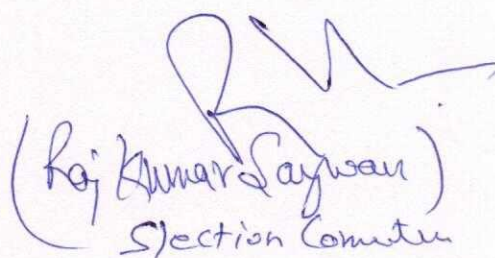 (Raj Kumar Saywan)
Slection Comittee